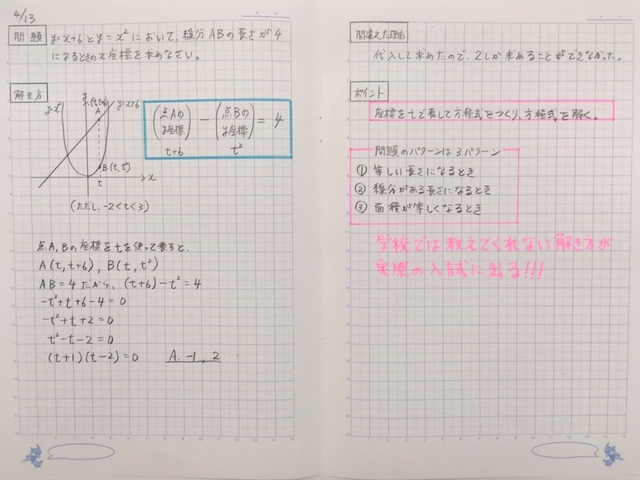 4/13
問題 y=x+6とy=x²において、線分ABの長さが4
になるときのx座標を求めなさい。
解き方
y=x²
A(t,t+6)
y=x+6
B(t,t²)
x
t
(ただし、-2<t<3)
(点Aのy座標) - (点Bのy座標) = 4
t+6 t²
点A,Bの座標をtを使って表すと、
A(t,t+6), B(t,t²)
AB=4だから、(t+6)-t²=4
-t²+t+6-4=0
-t²+t+2=0
t²-t-2=0
(t+1)(t-2)=0 A. -1, 2
間違えた理由
代入して求めたので、2しか求めることができなかった。
ポイント
座標をtで表して方程式をつくり、方程式を解く。
問題のパターンは3パターン
① 等しい長さになるとき
② 線分がある長さになるとき
③ 面積が等しくなるとき
学校では教えてくれない解き方が
実際の入試に出る!!!